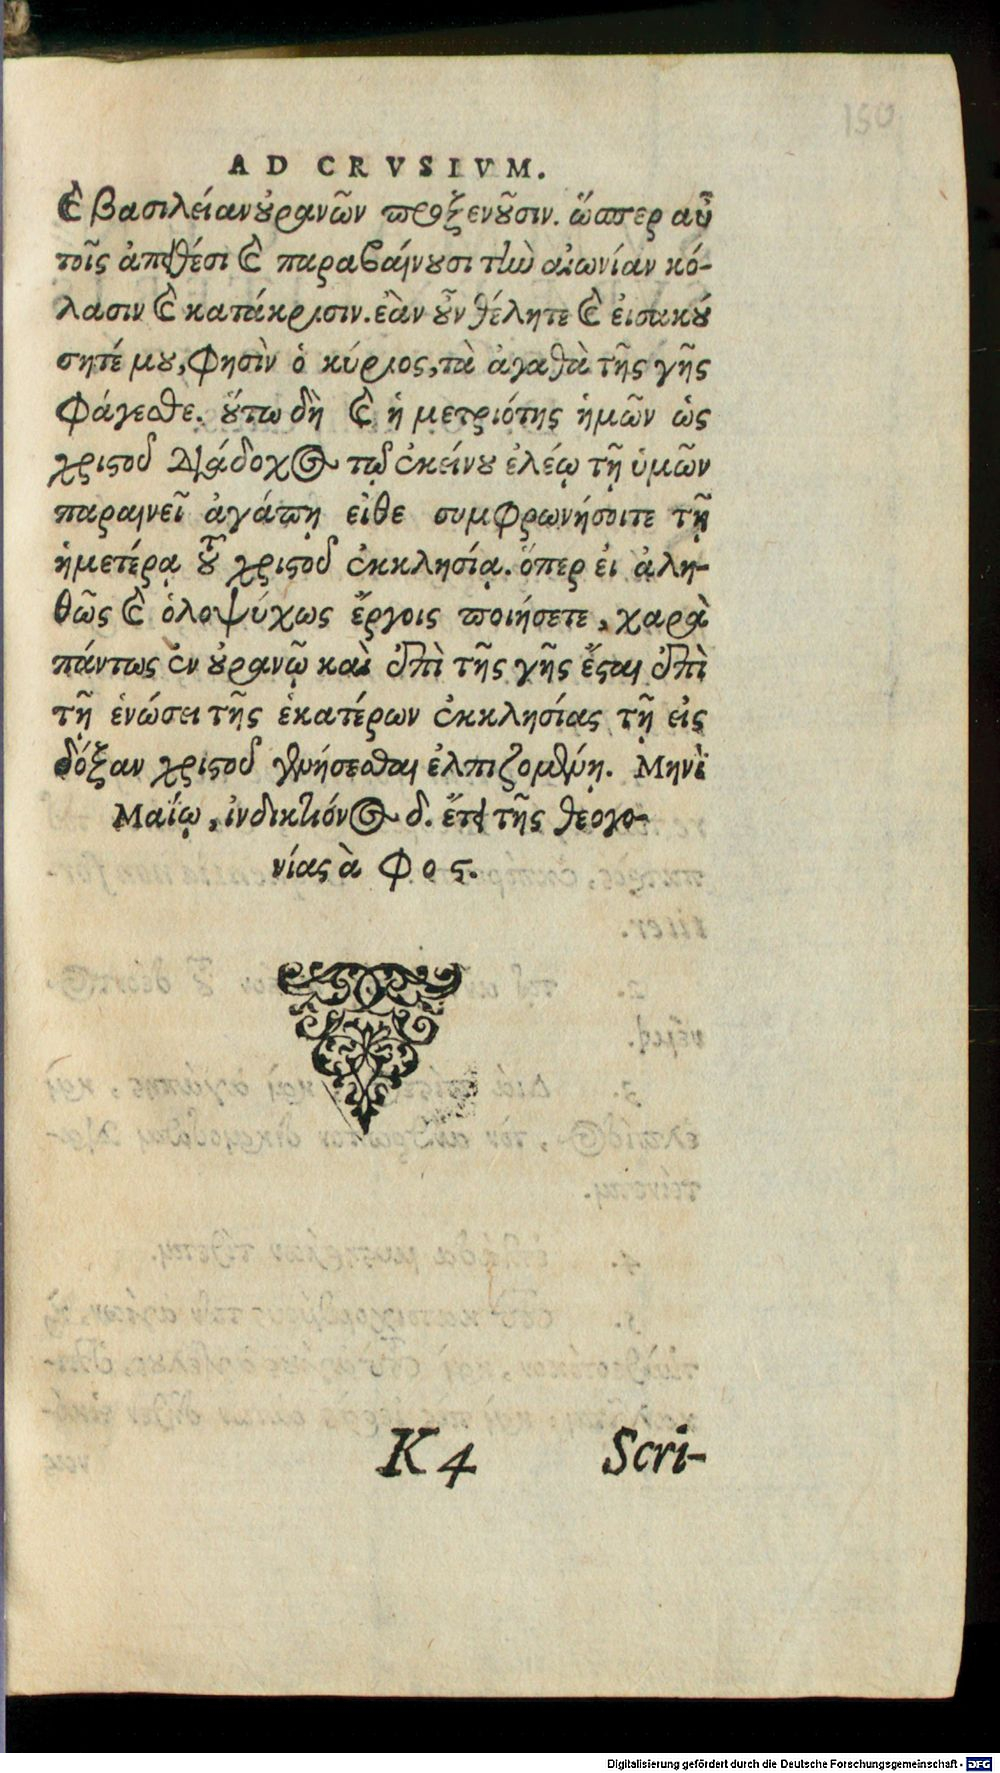 150
AD CRVSIVM.
ϗ βασιλείαν ȣρανῶν προξενȣ͂σιν. ὥσπερ αὖ
τοῖς ἀπειθέσι ϗ παραβαίνȣσι τὴν αἰωνίαν κό-
λασιν ϗ κατάκρισιν. ἐὰν ȣ͂ν θέλητε ϗ εἰσακȣ́
σητέ μȣ, φησὶν ὁ κύριος, τὰ ἀγαθὰ τῆς γῆς
φάγεσθε. ȣ̔́τω δὴ ϗ ἡ μετριότης ἡμῶν ὡς
χριϛοῦ διάδοχος τῷ ἐκείνȣ ἐλέῳ τῇ ὑμῶν
παραινεῖ ἀγάπῃ εἰθε συμφρωνήσοιτε τῇ
ἡμετέρᾳ τȣ͂ χριϛοῦ ἐκκλησίᾳ. ὅπερ εἰ ἀλη-
θῶς ϗ ὁλοψύχως ἔργοις ποιήσετε, χαρὰ
πάντως ἐν ȣρανῷ καὶ ἐπὶ τῆς γῆς ἔϛαι ἐπὶ
τῇ ἑνώσει τῆς ἑκατέρων ἐκκλησίας τῇ εἰς
δόξαν χριϛοῦ γενήσεσθαι ἐλπιζομένῃ. Μηνὶ
Μαΐῳ, ἰνδικτιόνος δ. ἔτει τῆς θεογο-
νίας ὰ φ ο ς.
K 4 Scri-
Digitalisierung gefördert durch die Deutsche Forschungsgemeinschaft - DFG